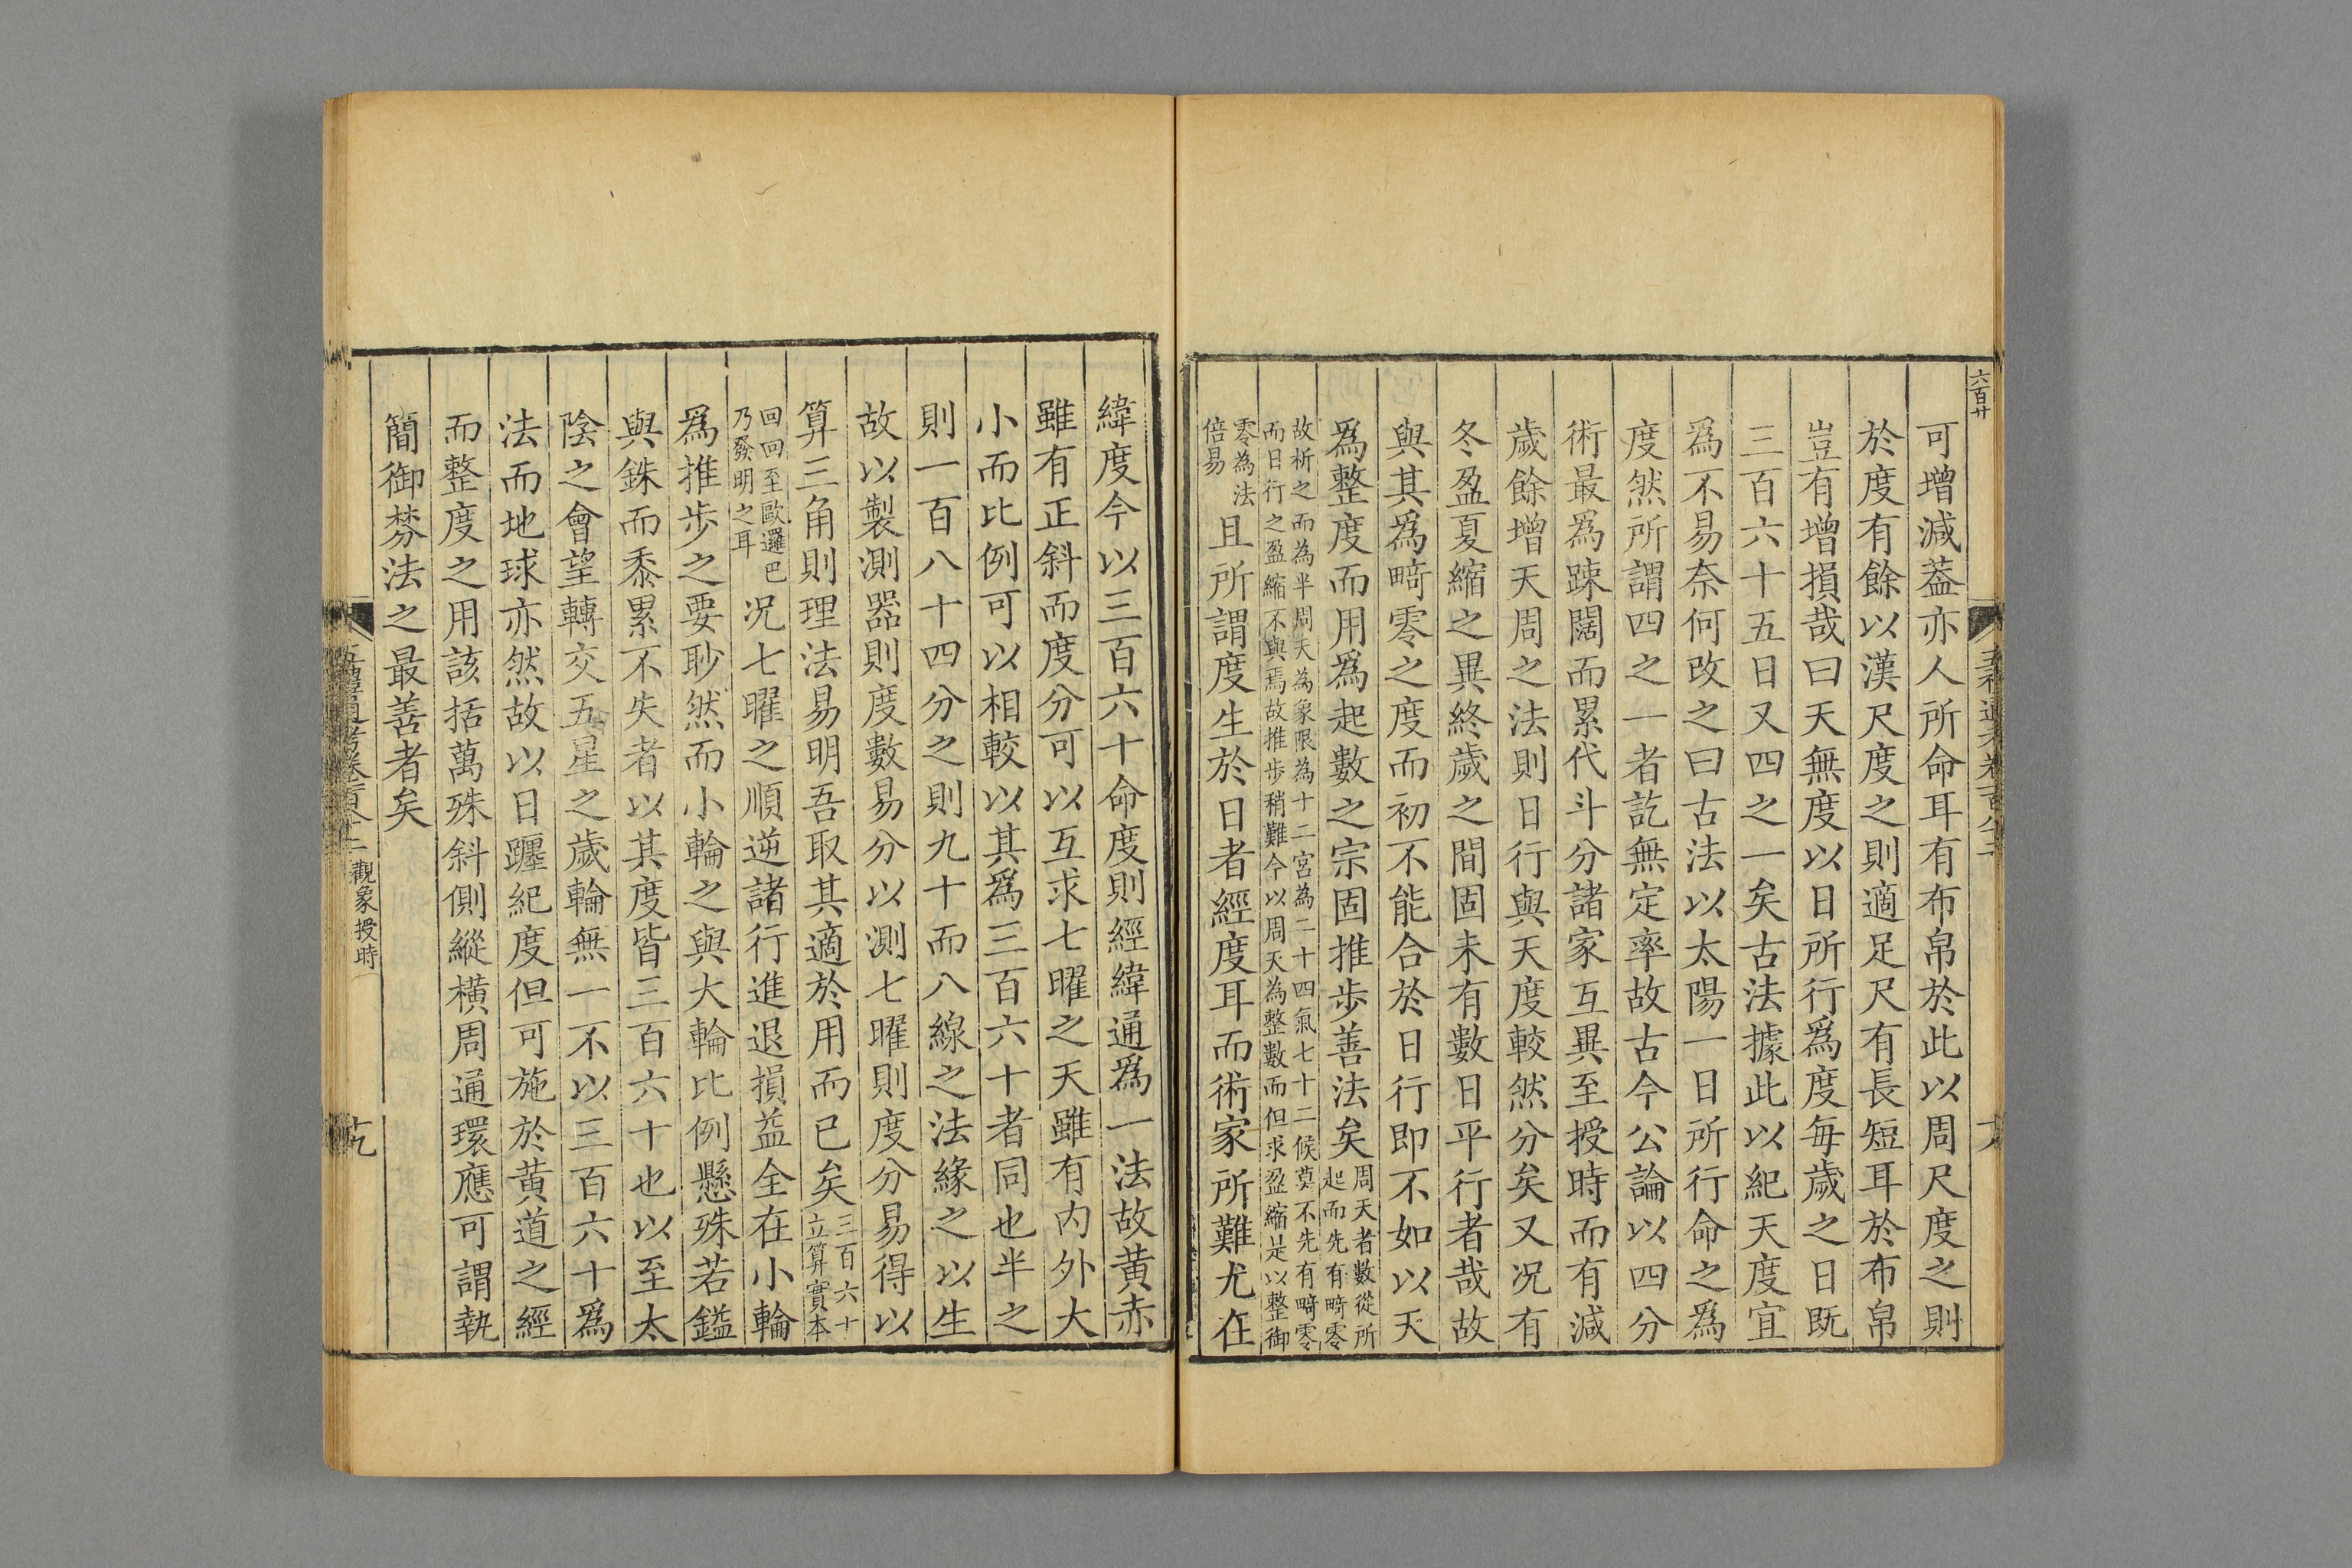 六百廿
可增減葢亦人所命耳有布帛於此以周尺度之則
於度有餘以漢尺度之則適足尺有長短耳於布帛
豈有增損哉曰天無度以日所行爲度每歲之日既
三百六十五日又四之一矣古法據此以紀天度宜
爲不易奈何改之曰古法以太陽一日所行命之爲
度然所謂四之一者訖無定率故古今公論以四分
術最爲踈闊而累代斗分諸家互異至授時而有減
歲餘增天周之法則日行與天度較然分矣又况有
冬盈夏縮之異終歲之間固未有數日平行者哉故
與其爲畸零之度而初不能合於日行即不如以天
爲整度而用爲起數之宗固推歩善法矣周天者數從所
起而先有畸零
故析之而為半周天為象限為十二宮為二十四氣七十二候莫不先有畸零
而日行之盈縮不與焉故推歩稍難今以周天為整數而但求盈縮是以整御
零為法
倍易且所謂度生於日者經度耳而術家所難尤在
緯度今以三百六十命度則經緯通爲一法故黃赤
雖有正斜而度分可以互求七曜之天雖有內外大
小而比例可以相較以其爲三百六十者同也半之
則一百八十四分之則九十而八線之法緣之以生
故以製測器則度數易分以測七曜則度分易得以
算三角則理法易明吾取其適於用而已矣三百六十
立算實本
回回至歐邏巴
乃發明之耳况七曜之順逆諸行進退損益全在小輪
爲推歩之要眇然而小輪之與大輪比例懸殊若鎰
與銖而黍累不失者以其度皆三百六十也以至太
陰之會望轉交五星之歲輪無一不以三百六十爲
法而地球亦然故以日躔紀度但可施於黃道之經
而整度之用該括萬殊斜側縱橫周通環應可謂執
簡御棼法之最善者矣
觀象授時